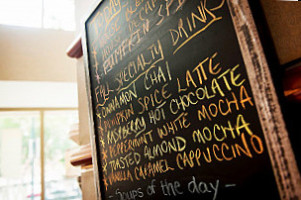 PUMPKIN SPI
SPECIALTY DRINK
FALL SPECIALTY
* CINNAMON CHAI
* PUMPKIN SPICE LATTE
* RASPBERRY HOT CHOCOLATE
* PEPPERMINT WHITE MOCHA
* TOASTED ALMOND MOCHA
* VANILLA CARAMEL CAPPUCCINO
- SOUPS of the day -